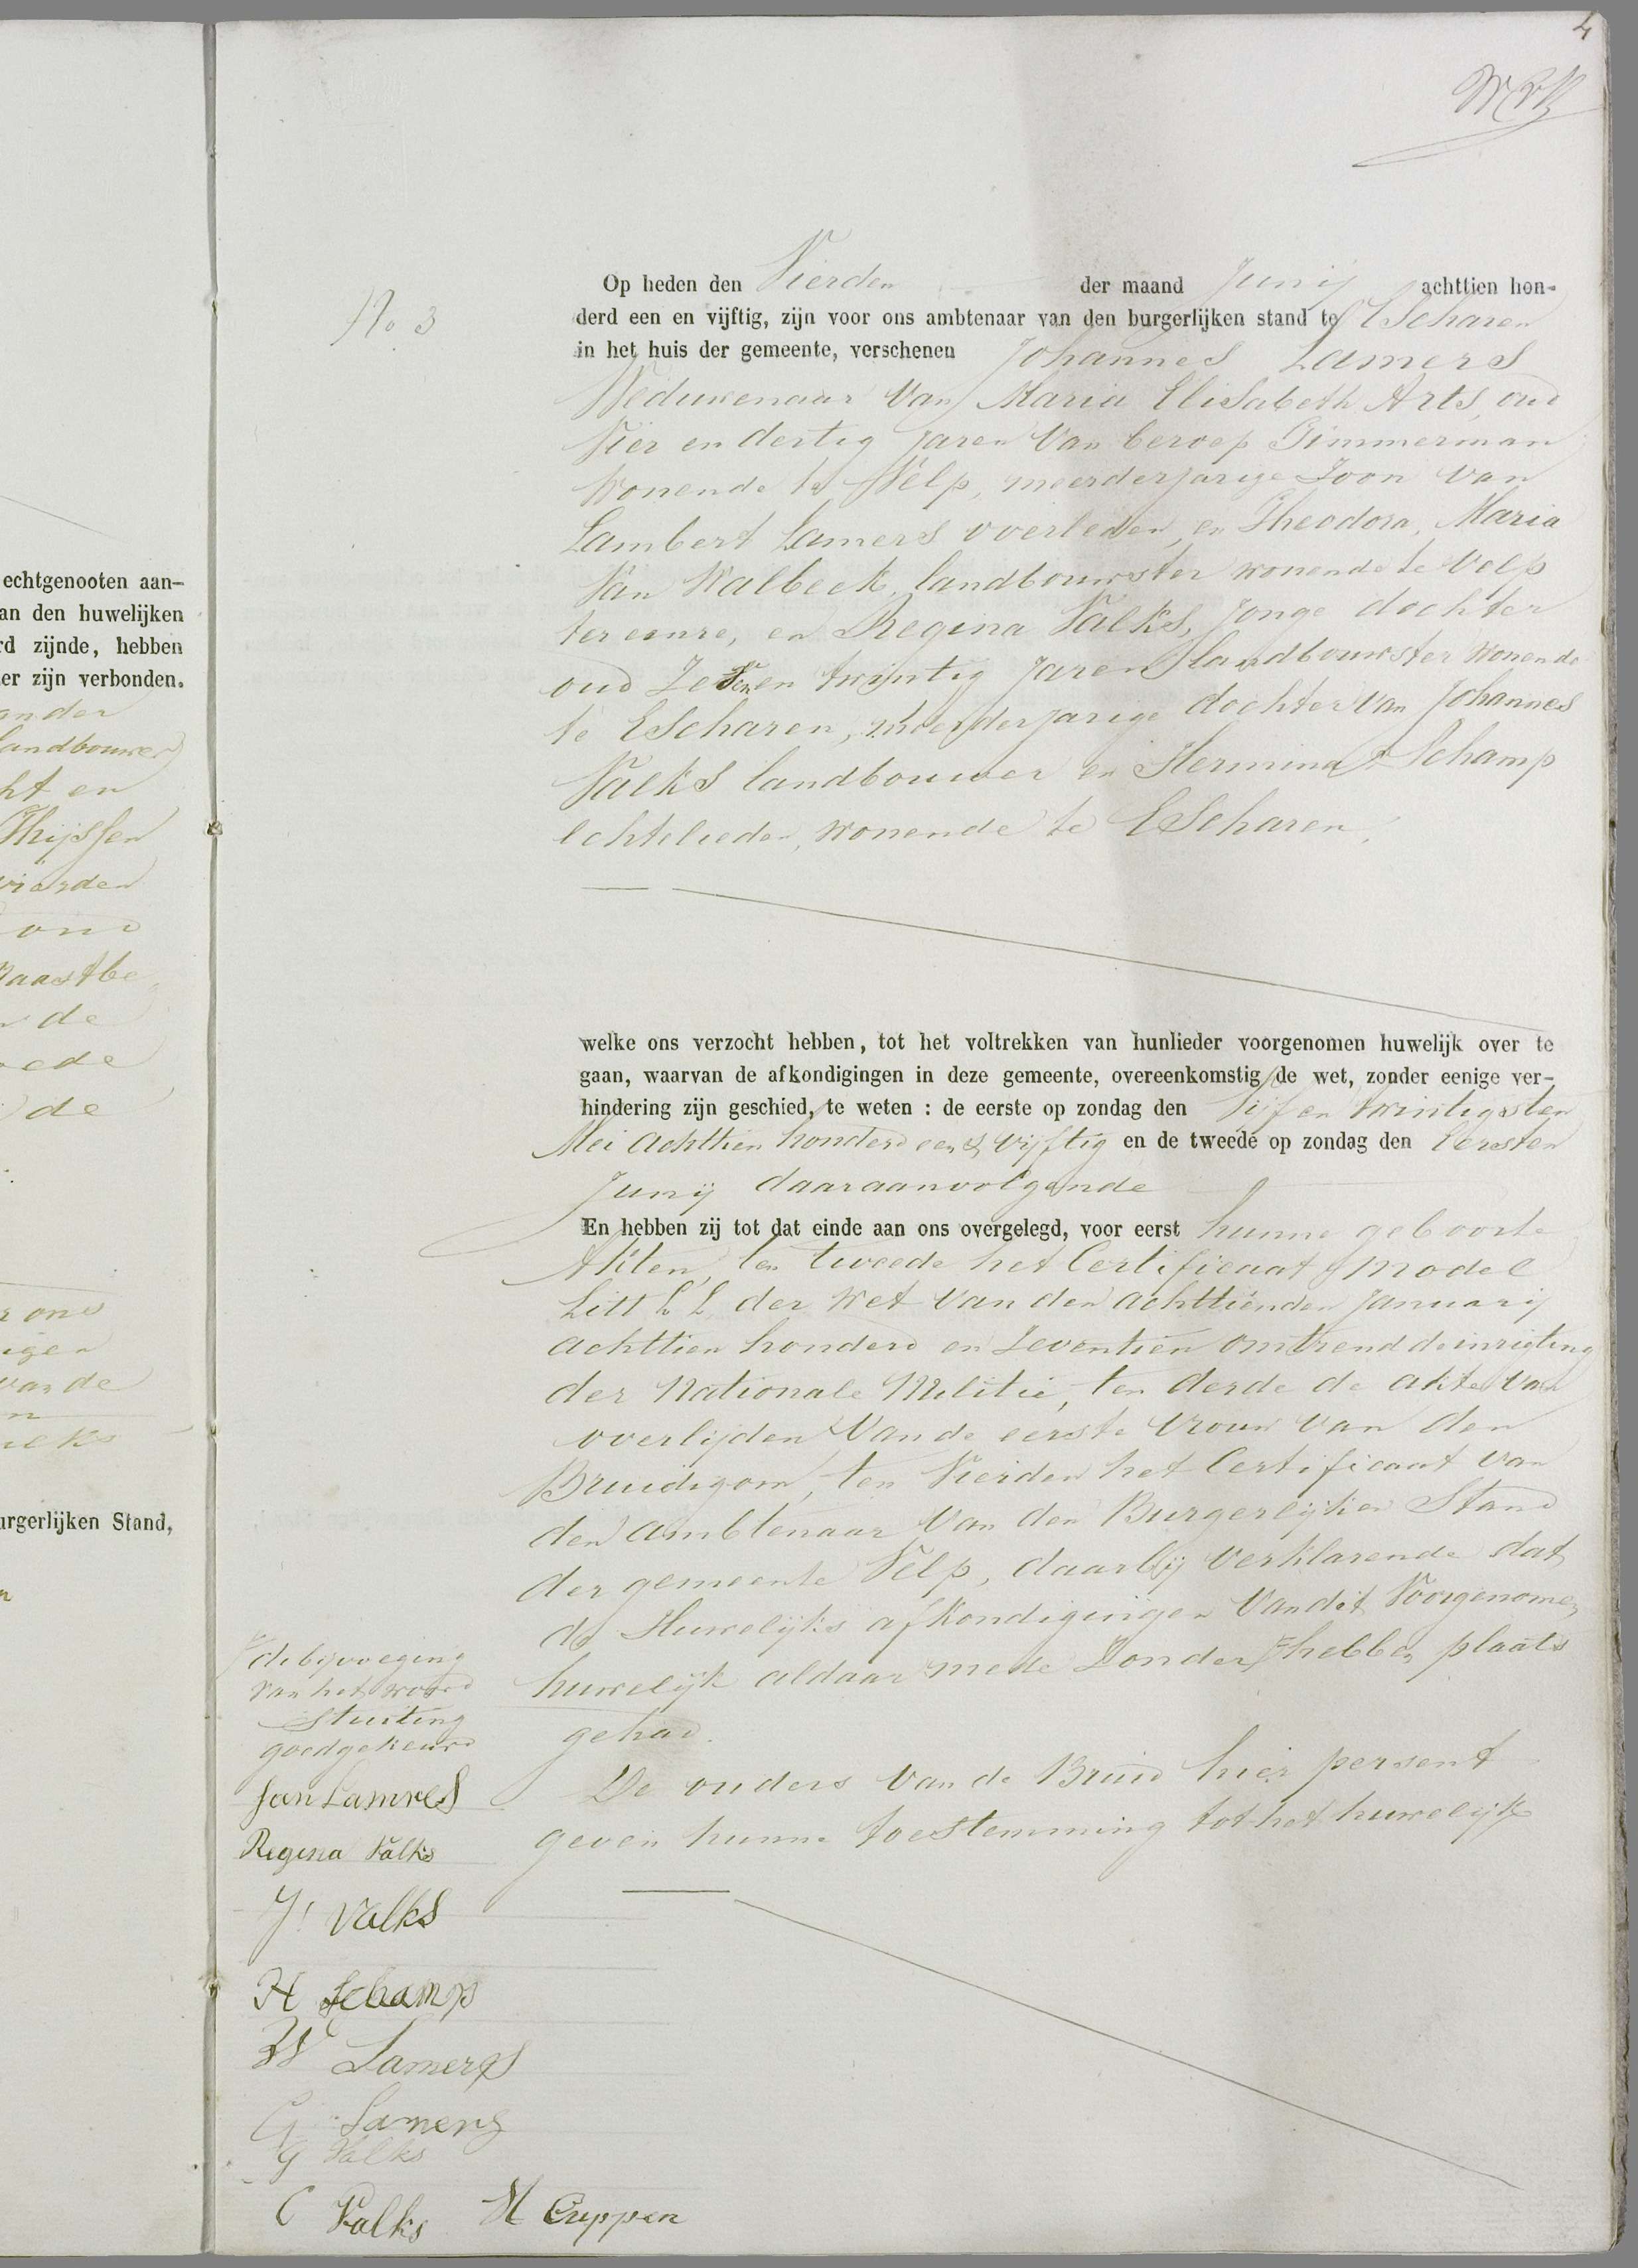 4
echtgenooten aan-
an den huwelijken
rd zijnde, hebben
er zijn verbonden.
ander
landbouwer
ht en
Thijssen
vierden
oud
naastbe
de
oede
de
r ons
igen
van de
urgerlijken Stand,
No 3
Op heden den Vierden der maand Junij achttien hon-
derd een en vijftig, zijn voor ons ambtenaar van den burgerlijken stand te EScharen
in het huis der gemeente, verschenen Johannes Lamers
Weduwenaar van Maria Elisabeth Arts, oud
Vier en dertig Jaren van beroep Timmerman
Wonende te Velp, meerderjarige Zoon van
Lambert Lamers overleden, en Theodora, Maria
Van Walbeek, landbouwster wonende te Velp
ter eenre, en Regina Valks, Jonge dochter
oud Zeven en twintig Jaren landbouwster wonende
te EScharen, meerderjarige dochter van Johannes
Valks landbouwer en Hermina Schamp
Echtelieden, wonende te EScharen,
welke ons verzocht hebben, tot het voltrekken van hunlieder voorgenomen huwelijk over te
gaan, waarvan de afkondigingen in deze gemeente, overeenkomstig de wet, zonder eenige ver-
hindering zijn geschied, te weten : de eerste op zondag den Vijf en twintigsten
Mei achttien honderd een & vijftig en de tweede op zondag den Eersten
Junij daaraanvolgende
En hebben zij tot dat einde aan ons overgelegd, voor eerst hunne geboorte
Akten, ten tweede het Certificaat Model
Litt L L der Wet van den achttienden Januarij
achttien honderd en Zeventien omtrend de inrigting
der Nationale Militie, ten derde de akte van
overlijden van de eerste vrouw van den
Bruidigom, ten Vierden het Certificaat van
den ambtenaar van den Burgerlijken Stand
der gemeente Velp, daarbij verklarende dat
de Huwelijks afkondigingen van dit Voorgenomen
huwelijk aldaar mede Zonder hebben plaats
gehad.
De ouders van de Bruid hier persent
geven hunne toestemming tot het huwelijk
de bijvoeging
van het woord
Stuiting
goedgekeurd
Jan Lamres
Regina Valks
J: Valks
H Schamp
W Lamers
G Lamers
G Valks
C Valks M Cuppen